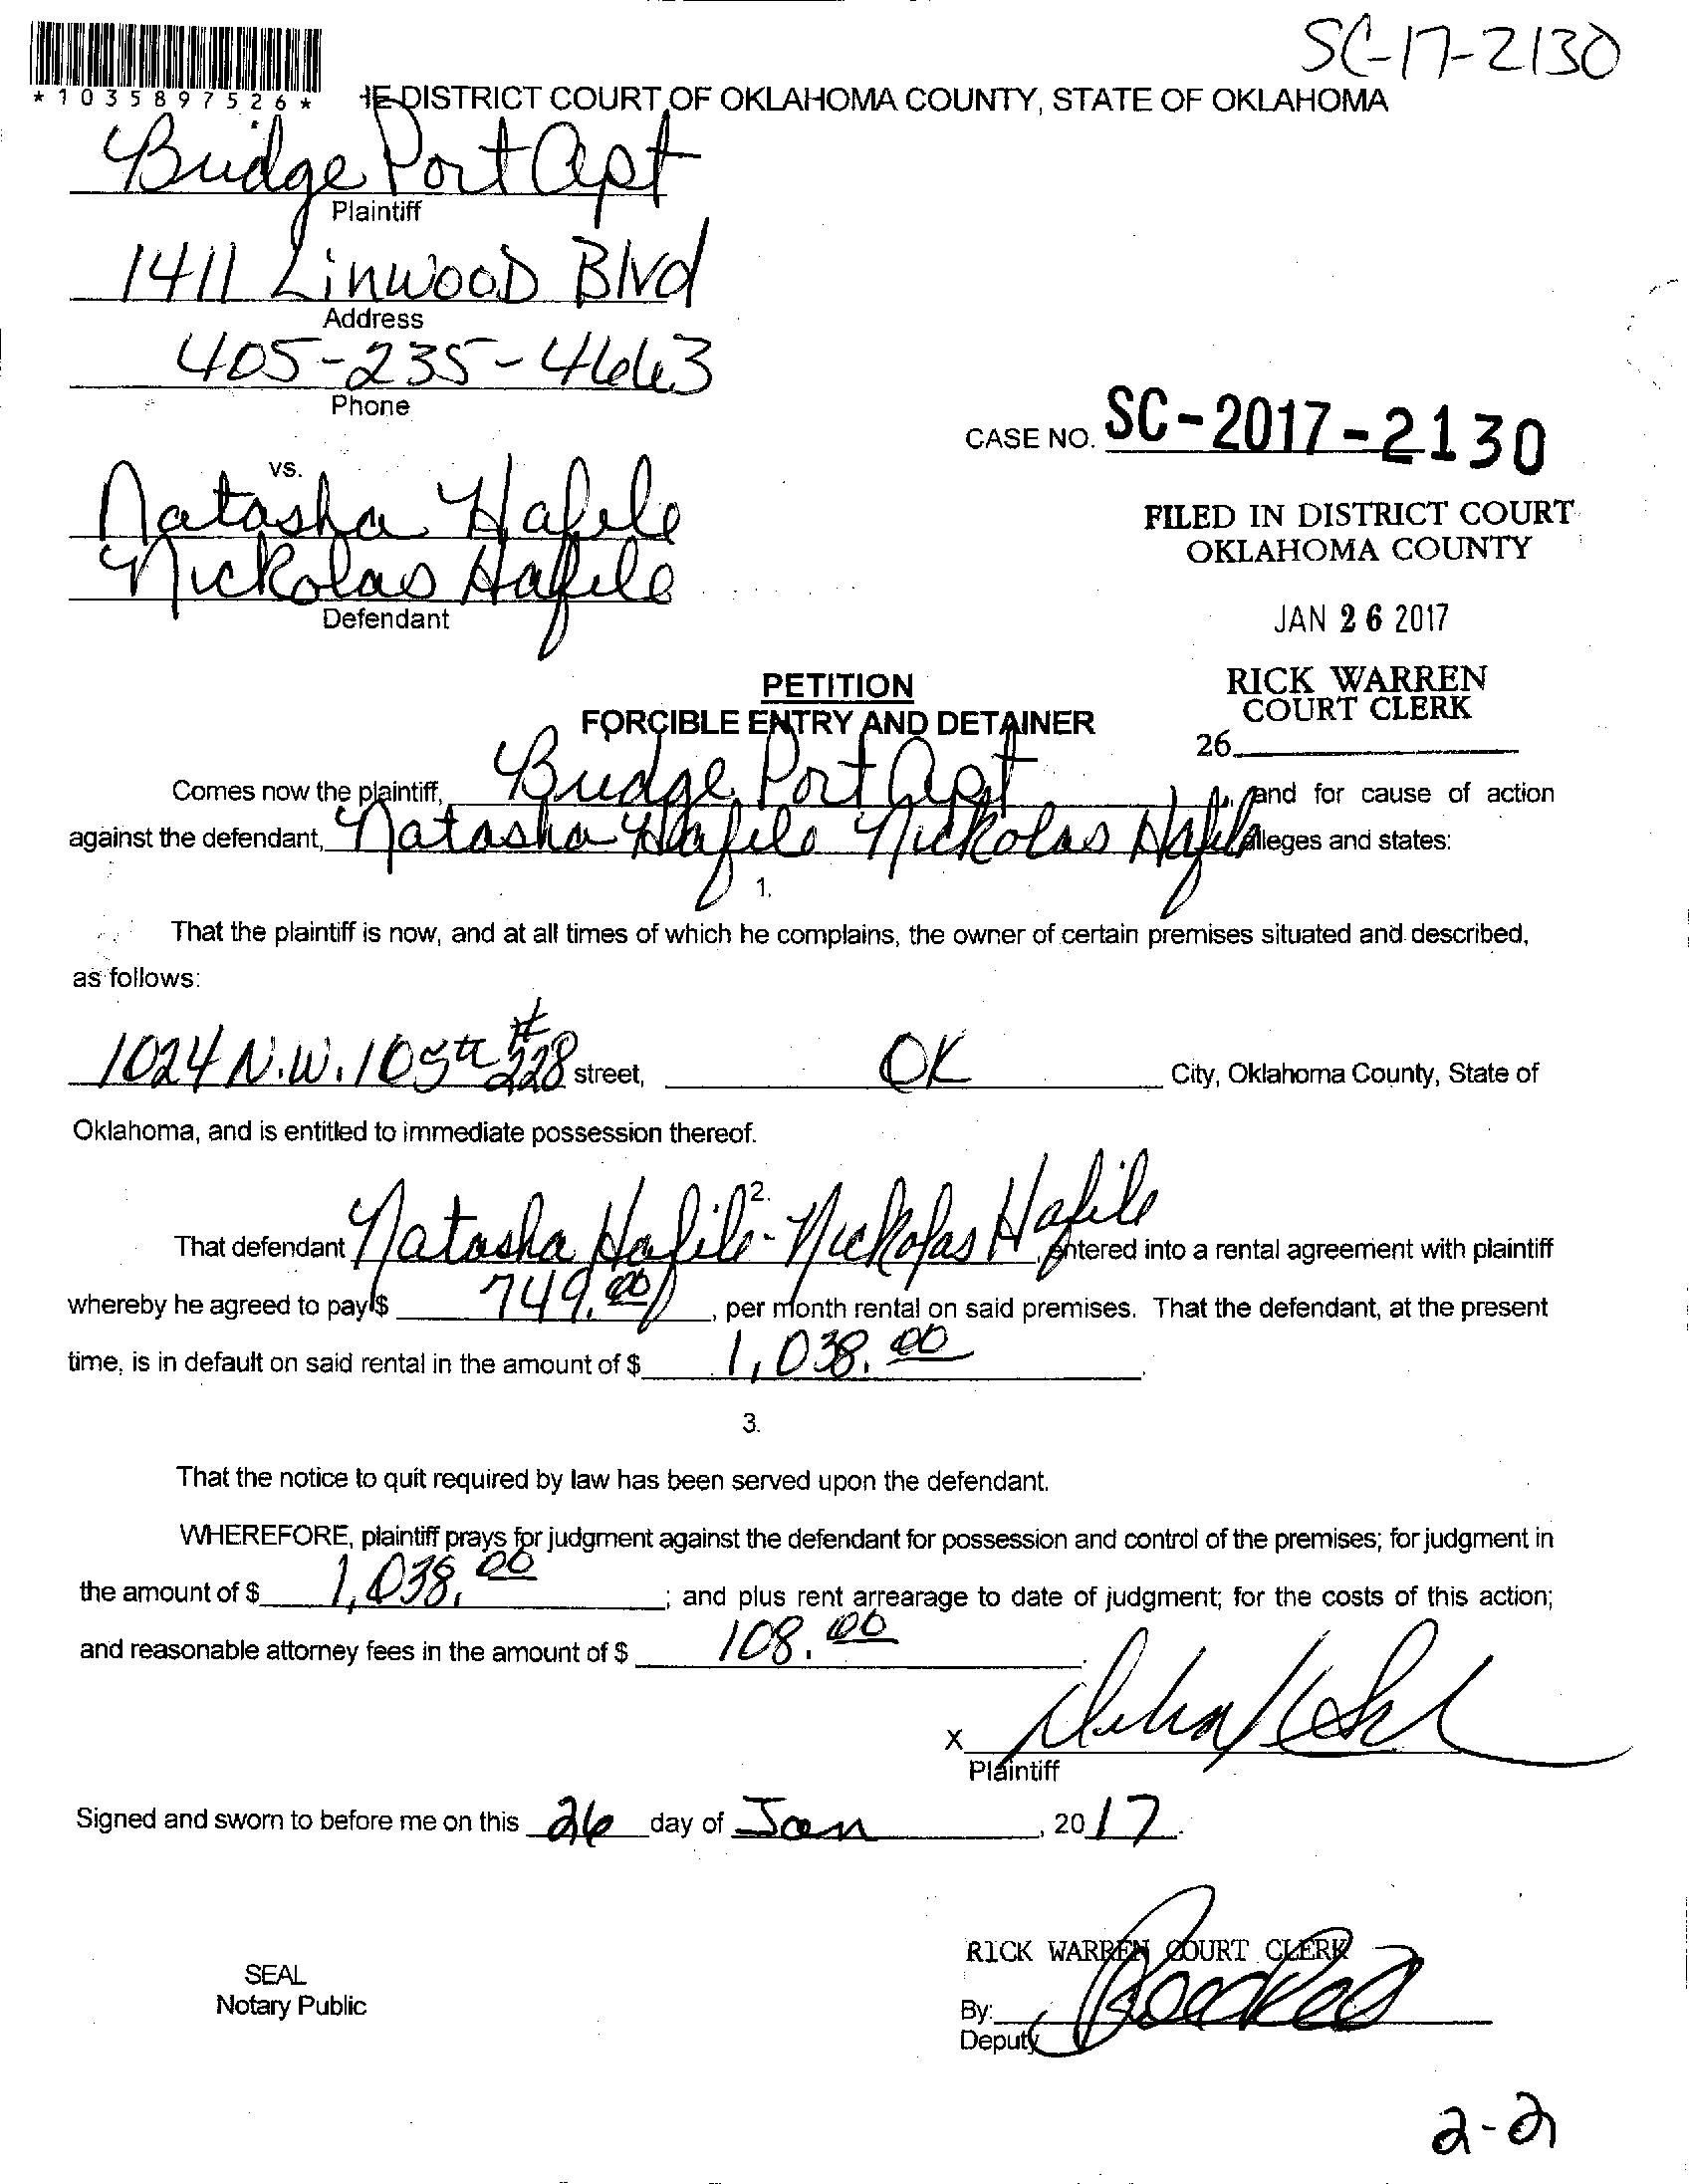 SC-17-2130
*1035897526*
HE DISTRICT COURT OF OKLAHOMA COUNTY, STATE OF OKLAHOMA
Bridge Port Apt
Plaintiff
1411 Linwood Blvd
Address
405-235-4663
Phone
CASE NO. SC-2017-2130
vs.
Natasha Hafile
Nickolas Hafile
Defendant
FILED IN DISTRICT COURT
OKLAHOMA COUNTY
JAN 26 2017
RICK WARREN
COURT CLERK
26
PETITION
FORCIBLE ENTRY AND DETAINER
Comes now the plaintiff, Bridge Port Apt, and for cause of action
against the defendant, Natasha Hafile Nickolas Hafile alleges and states:
1.
That the plaintiff is now, and at all times of which he complains, the owner of certain premises situated and described,
as follows:
1024 N.W. 105th #228 street, OK City, Oklahoma County, State of
Oklahoma, and is entitled to immediate possession thereof.
2.
That defendant Natasha Hafile - Nickolas Hafile, entered into a rental agreement with plaintiff
whereby he agreed to pay $ 749.00, per month rental on said premises. That the defendant, at the present
time, is in default on said rental in the amount of $ 1,038.00.
3.
That the notice to quit required by law has been served upon the defendant.
WHEREFORE, plaintiff prays for judgment against the defendant for possession and control of the premises; for judgment in
the amount of $ 1,038.00; and plus rent arrearage to date of judgment; for the costs of this action;
and reasonable attorney fees in the amount of $ 108.00.
X
Plaintiff
Signed and sworn to before me on this 26 day of Jan, 2017.
RICK WARREN COURT CLERK
SEAL
Notary Public
By:
Deputy
2-2